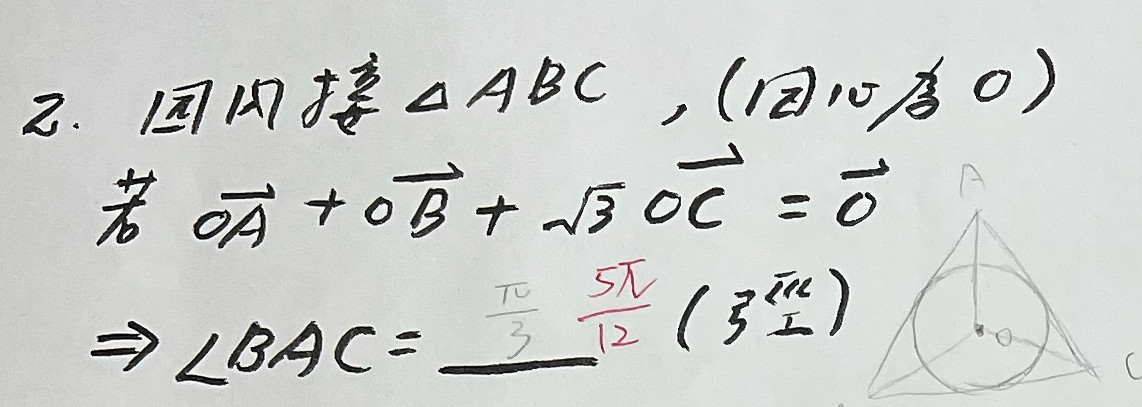 2. 圓内接△ABC,(圓心為O)
若 OA + OB + √3 OC = 0
⇒ ∠BAC = π/3 5π/12 (弳)
A
O
C